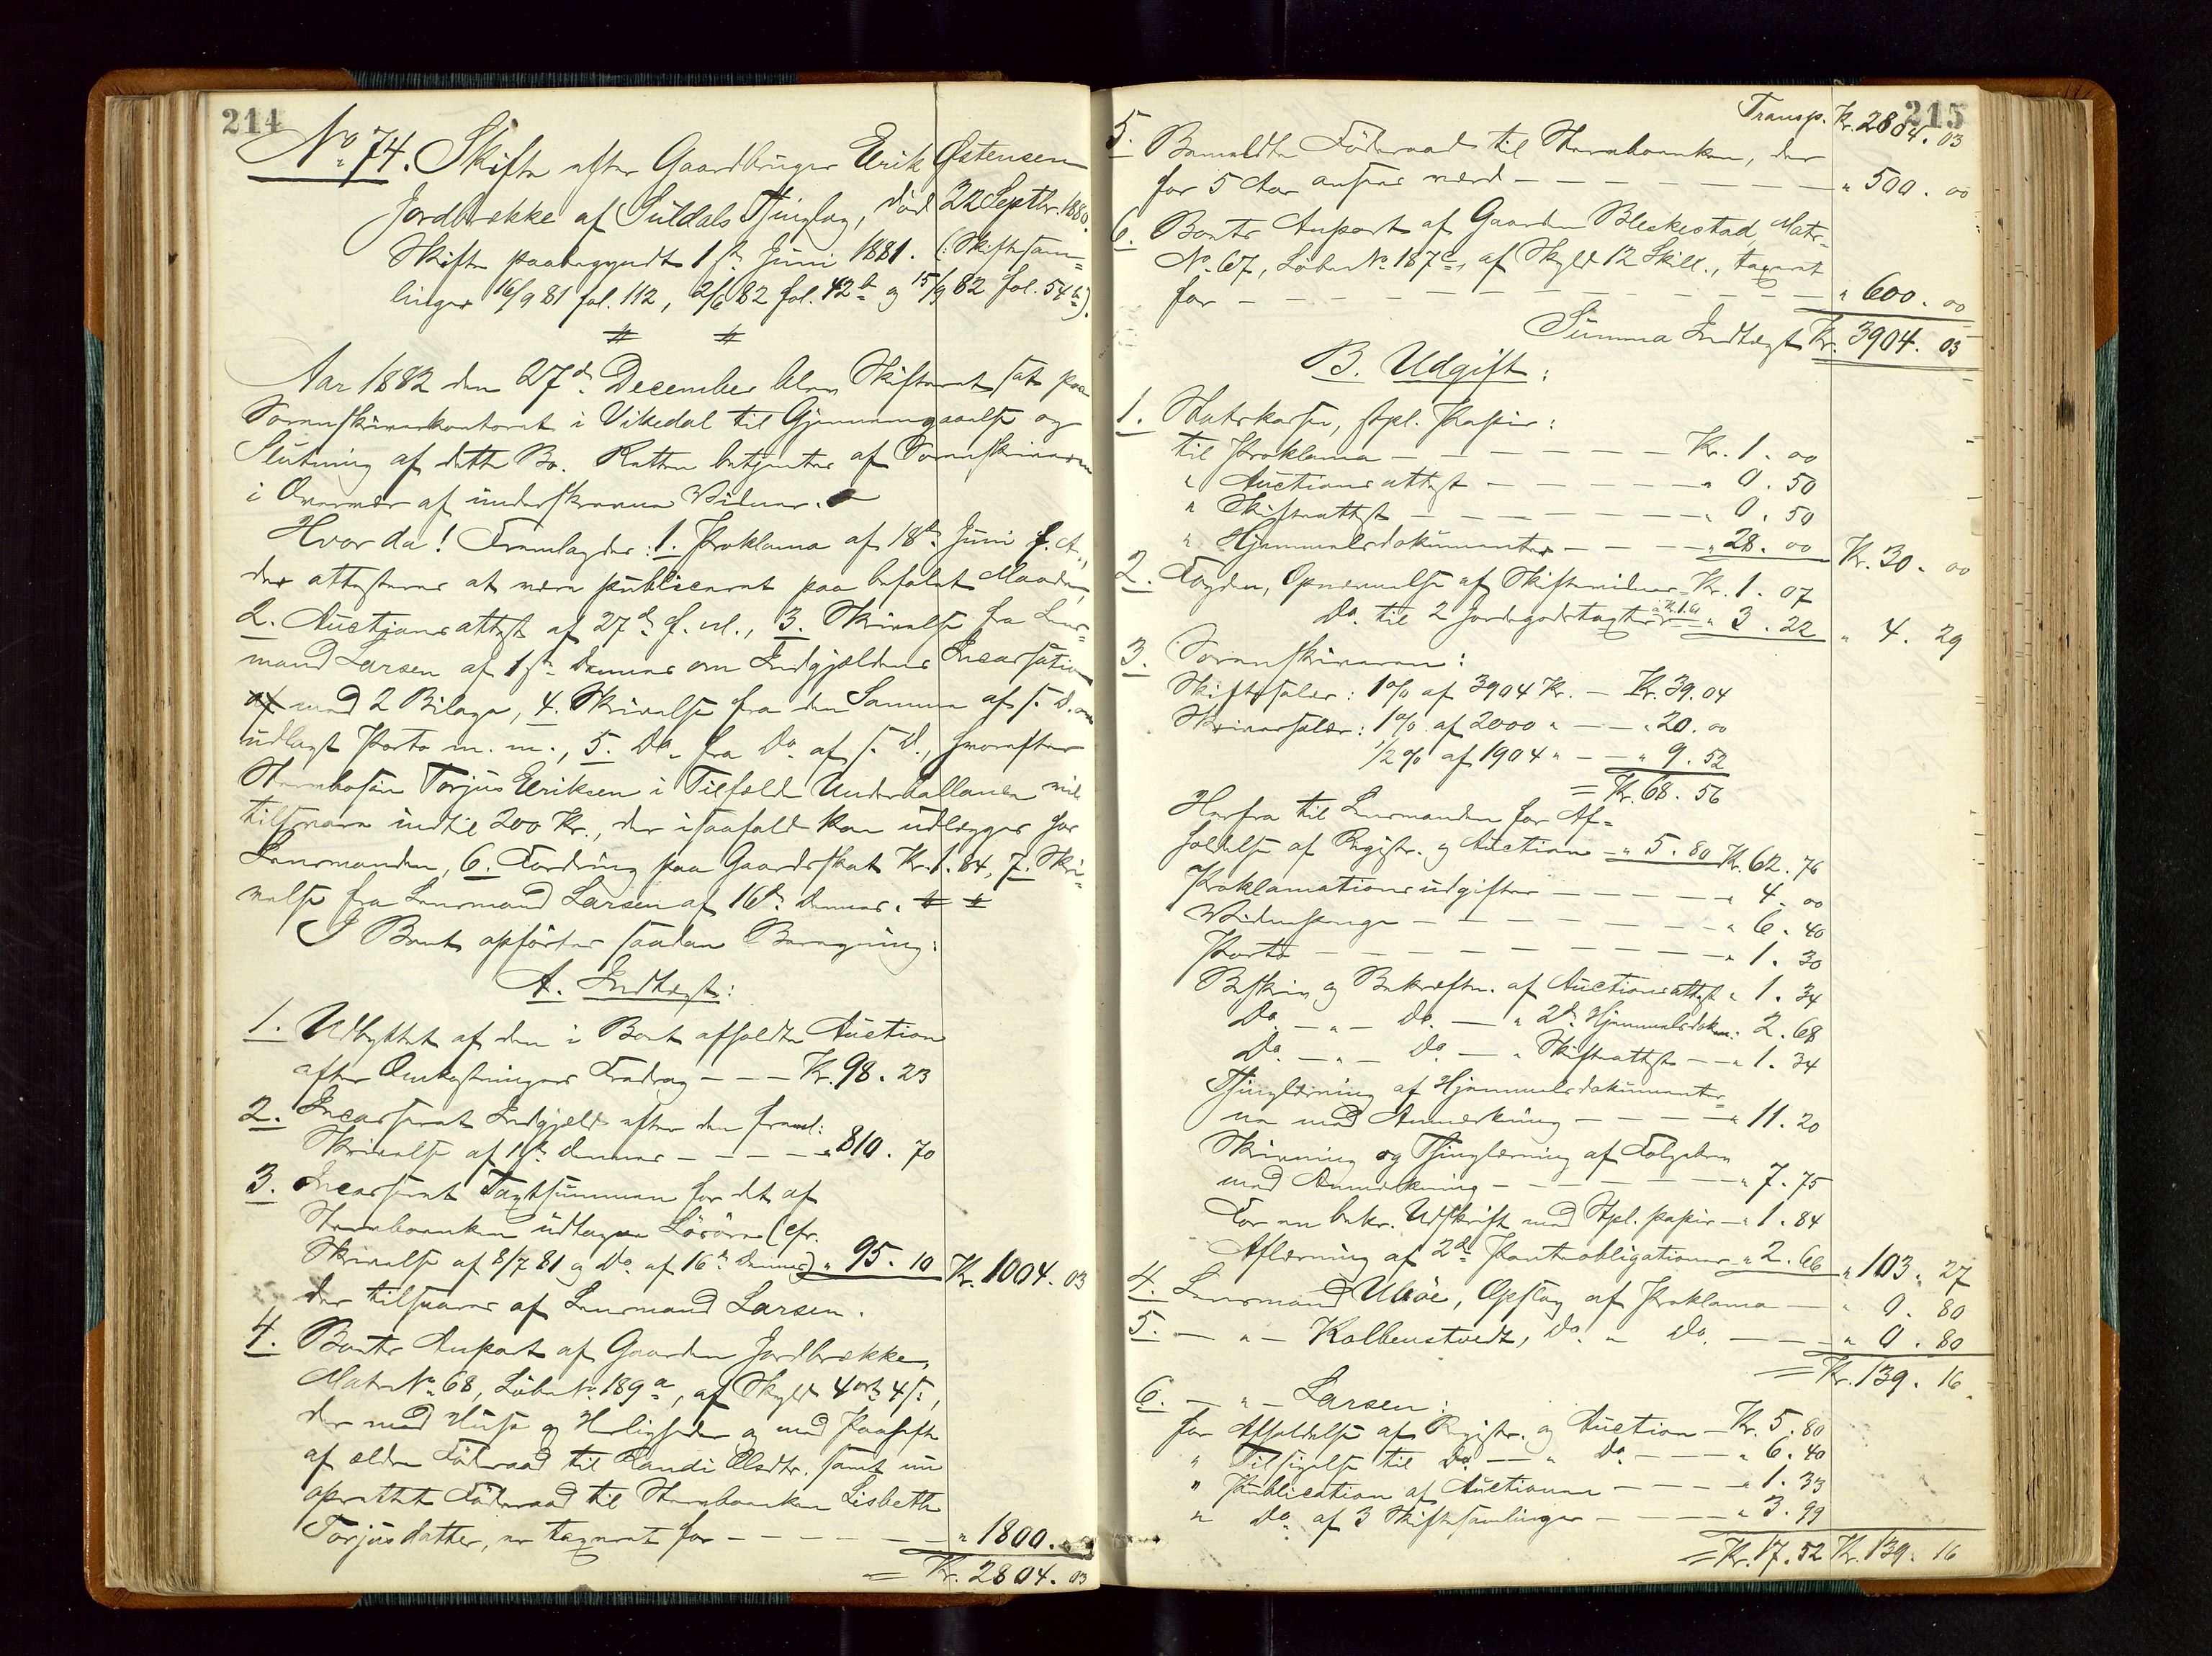 214
No 74. Skifte efter Gaardbruger Eirik Østensen
Jordbrække af Suldals Thinglag, død 22 Septbr. 1880.
Skifte paabegyndt 1ste Juni 1881. (: Skiftesam=
linger 16/9 81 fol. 112, 2/6 82 fol. 42b og 15/9 82 fol. 54b).
Aar 1882 den 27de December blev Skifteret sat paa
Sorenskriverkontoret i Vikedal til Gjennemgaaelse og
Slutning af dette Bo. Retten betjentes af Sorenskriveren
i Overvær af underskrevne Vidner.
Hvorda! Fremlagdes: 1. Proklama af 18de Juni f. A.,
der attesteres at være publiceret paa befalet Maade,
2. Auctionsattest af 27de f. M., 3. Skrivelse fra Lens=
mand Larsen af 1ste dennes om Indgjældens Incassation
med 2 Bilage, 4. Skrivelse fra den Samme af s. D. om
udlagt Porto m. m., 5. Do fra Do af s. D., hvorefter
Stervbosøn Torjus Eiriksen i Tilfælde Underballance vil
tilsvare indtil 200 Kr., der isaafald kan udlægges for
Lensmanden, 6. Fordring paa Gaardsskat Kr. 1.84, 7. Skri=
velse fra Lensmand Larsen af 16de dennes.
I Boet opførtes saadan Beregning:
A. Indtægt:
1. Udbyttet af den i Boet afholdte Auction
efter Omkostningers Fradrag - - - Kr. 98. 23
2. Incasseret Indgjæld efter den freml.
Skrivelse af 1ste dennes - - - - - " 810. 70
3. Incasseret Taxtsummen for det af
Stervboenken udtagne Løsøre (cfr.
Skrivelse af 8/7 81 og Do af 16de dennes) " 95. 10 Kr. 1004. 03
der tilsvares af Lensmand Larsen.
4. Boets Anpart af Gaarden Jordbrække,
Matr. No 68, Løbe No 189a, af Skyld 4 ort 4 s.,
der med Huse og Herligheder og med Paahæft
af ældre Føderaad til Randi Olsdtr. samt nu
oprettet Føderaad til Stervboenken Lisbeth
Torjusdatter, er taxeret for - - - - - " 1800.
= Kr. 2804. 03
215
Transp. Kr. 2804. 03
5. Bemeldte Føderaad til Stervboenken, der
for 5 Aar ansees værd - - - - - - " 500. 00
6. Boets Anpart af Gaarden Bleskestad, Matr.
No 67, Løbe No 187c, af Skyld 12 Skill., taxeret
for - - - - - - - - - - " 600. 00
Summa Indtægt Kr. 3904. 03
B. Udgift:
1. Statskassen, stpl. Papir:
til Proklama - - - - - - - Kr. 1. 00
" Auctionsattest - - - - - - " 0. 50
" Skifteattest - - - - - - - " 0. 50
" Hjemmelsdokumenter - - - - " 28. 00 Kr. 30. 00
2. Fogden, Opnævnelse af Skiftevidner - Kr. 1. 07
Do. til 2 Jordegodstaxter à Kr. 1.61 " 3. 22 " 4. 29
3. Sorenskriveren:
Skiftesalær: 1% af 3904 Kr. - Kr. 39. 04
Skriversalær: 1% af 2000 " - - " 20. 00
1/2 % af 1904 " - - " 9. 52
= Kr. 68. 56
Herfra til Lensmanden for Af=
holdelse af Registr. og Auction - " 5. 80 Kr. 62. 76
Proklamationsudgifter - - - - - " 4. 00
Vidnepenge - - - - - - - " 6. 40
Porto - - - - - - - - - " 1. 30
Beskriv. og Bekræftn. af Auctionsattest " 1. 34
Do. - " - Do. - " 2de Hjemmelsdokum. 2. 68
Do. - " - Do. - " Skifteattest - - " 1. 34
Thinglæsning af Hjemmelsdokumenter=
ne med Anmerkning - - - - - " 11. 20
Skrivning og Thinglæsning af Følgebrev
med Anmerkning - - - - - - " 7. 75
For en bekr. Udskrift med Stpl. papir - " 1. 84
Aflæsning af 2de Panteobligationer " 2. 66 " 103. 27
4. Lensmand Ubøe, Opslag af Proklama - " 0. 80
5. - " - Kolbenstvedt, Do. " Do. - - " 0. 80
= Kr. 139. 16
6. - " - Larsen:
for Afholdelse af Registr. og Auction - Kr. 5. 80
" Tilsigelse til Do. - " Do. - - - " 6. 40
" Publication af Auctionen - - - - " 1. 33
" Do. af 3 Skiftesamlinger - - - - " 3. 99
= Kr. 17. 52 Kr. 139. 16